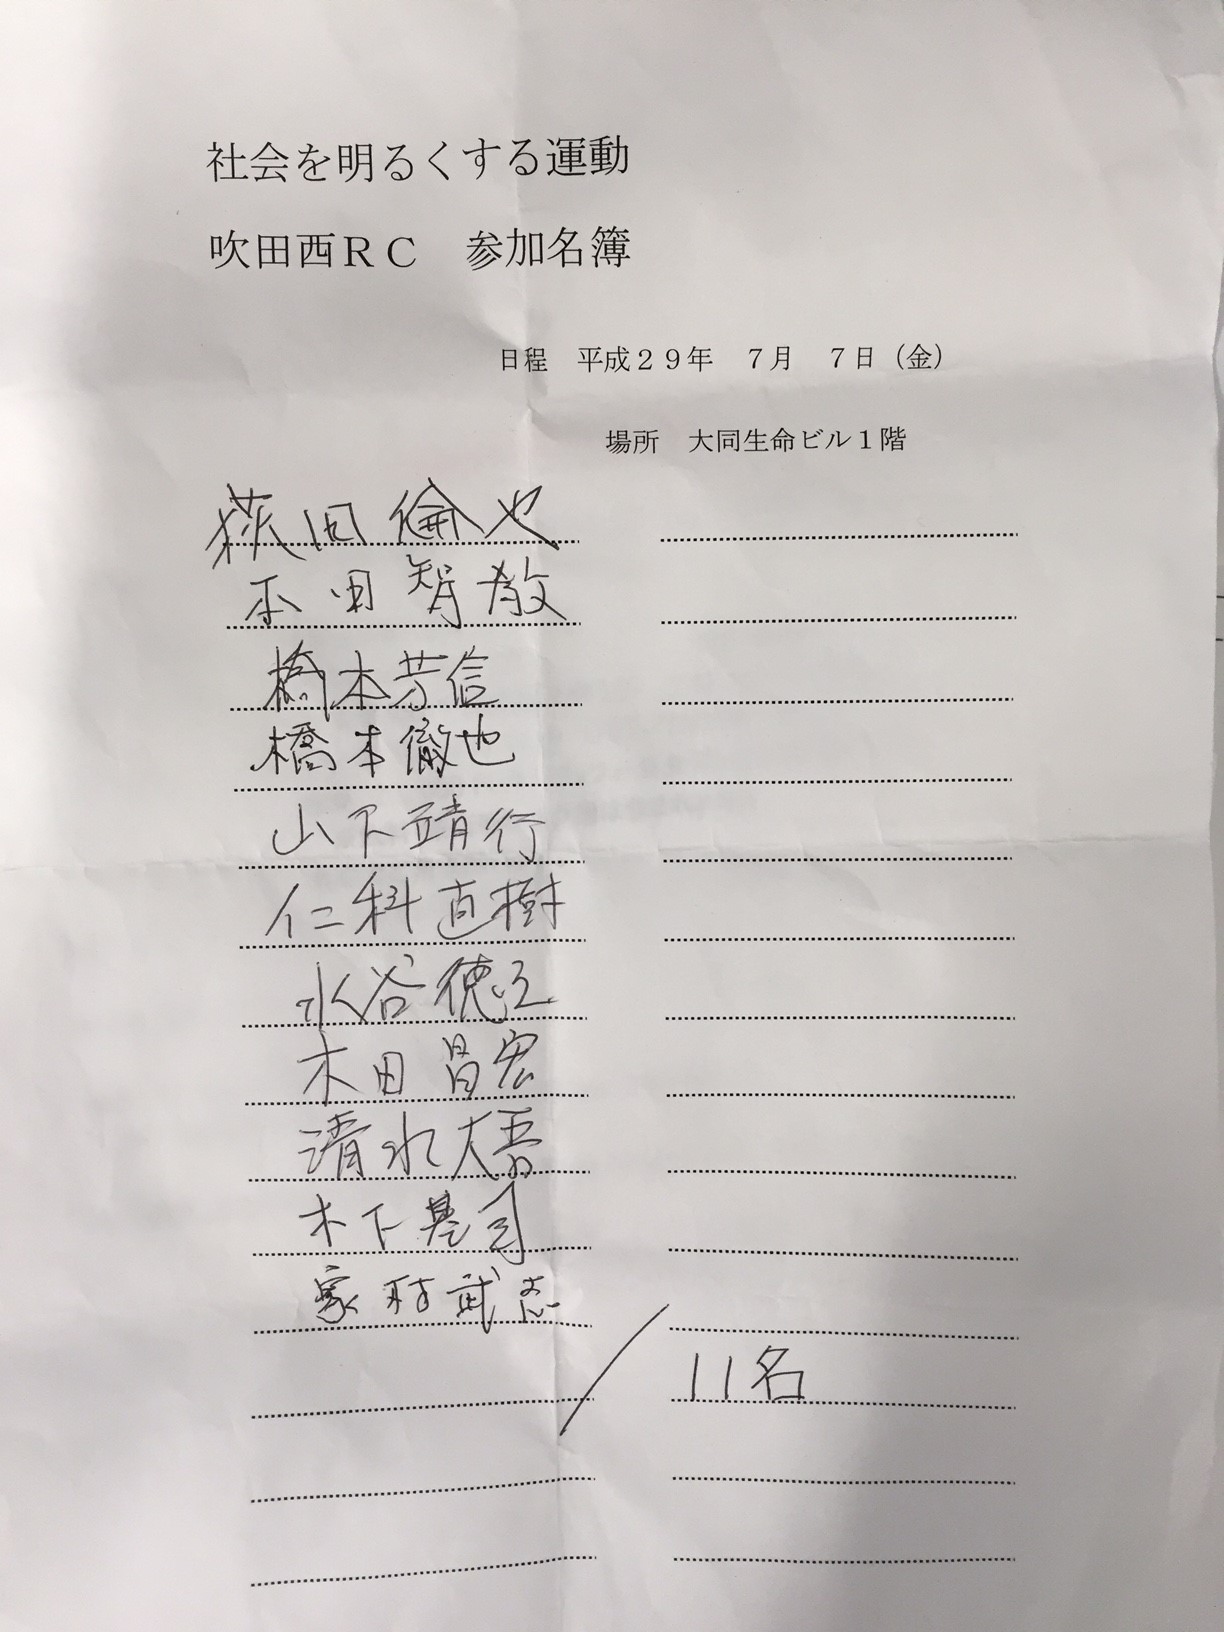 社会を明るくする運動
吹田西ＲＣ　参加名簿
日程　平成２９年　７月　７日（金）
場所　大同生命ビル１階
荻田倫也
本田智敬
橋本芳信
橋本徹也
山下靖行
仁科直樹
水谷徳之
木田昌宏
清水大吾
木下基司
家村武志
11名